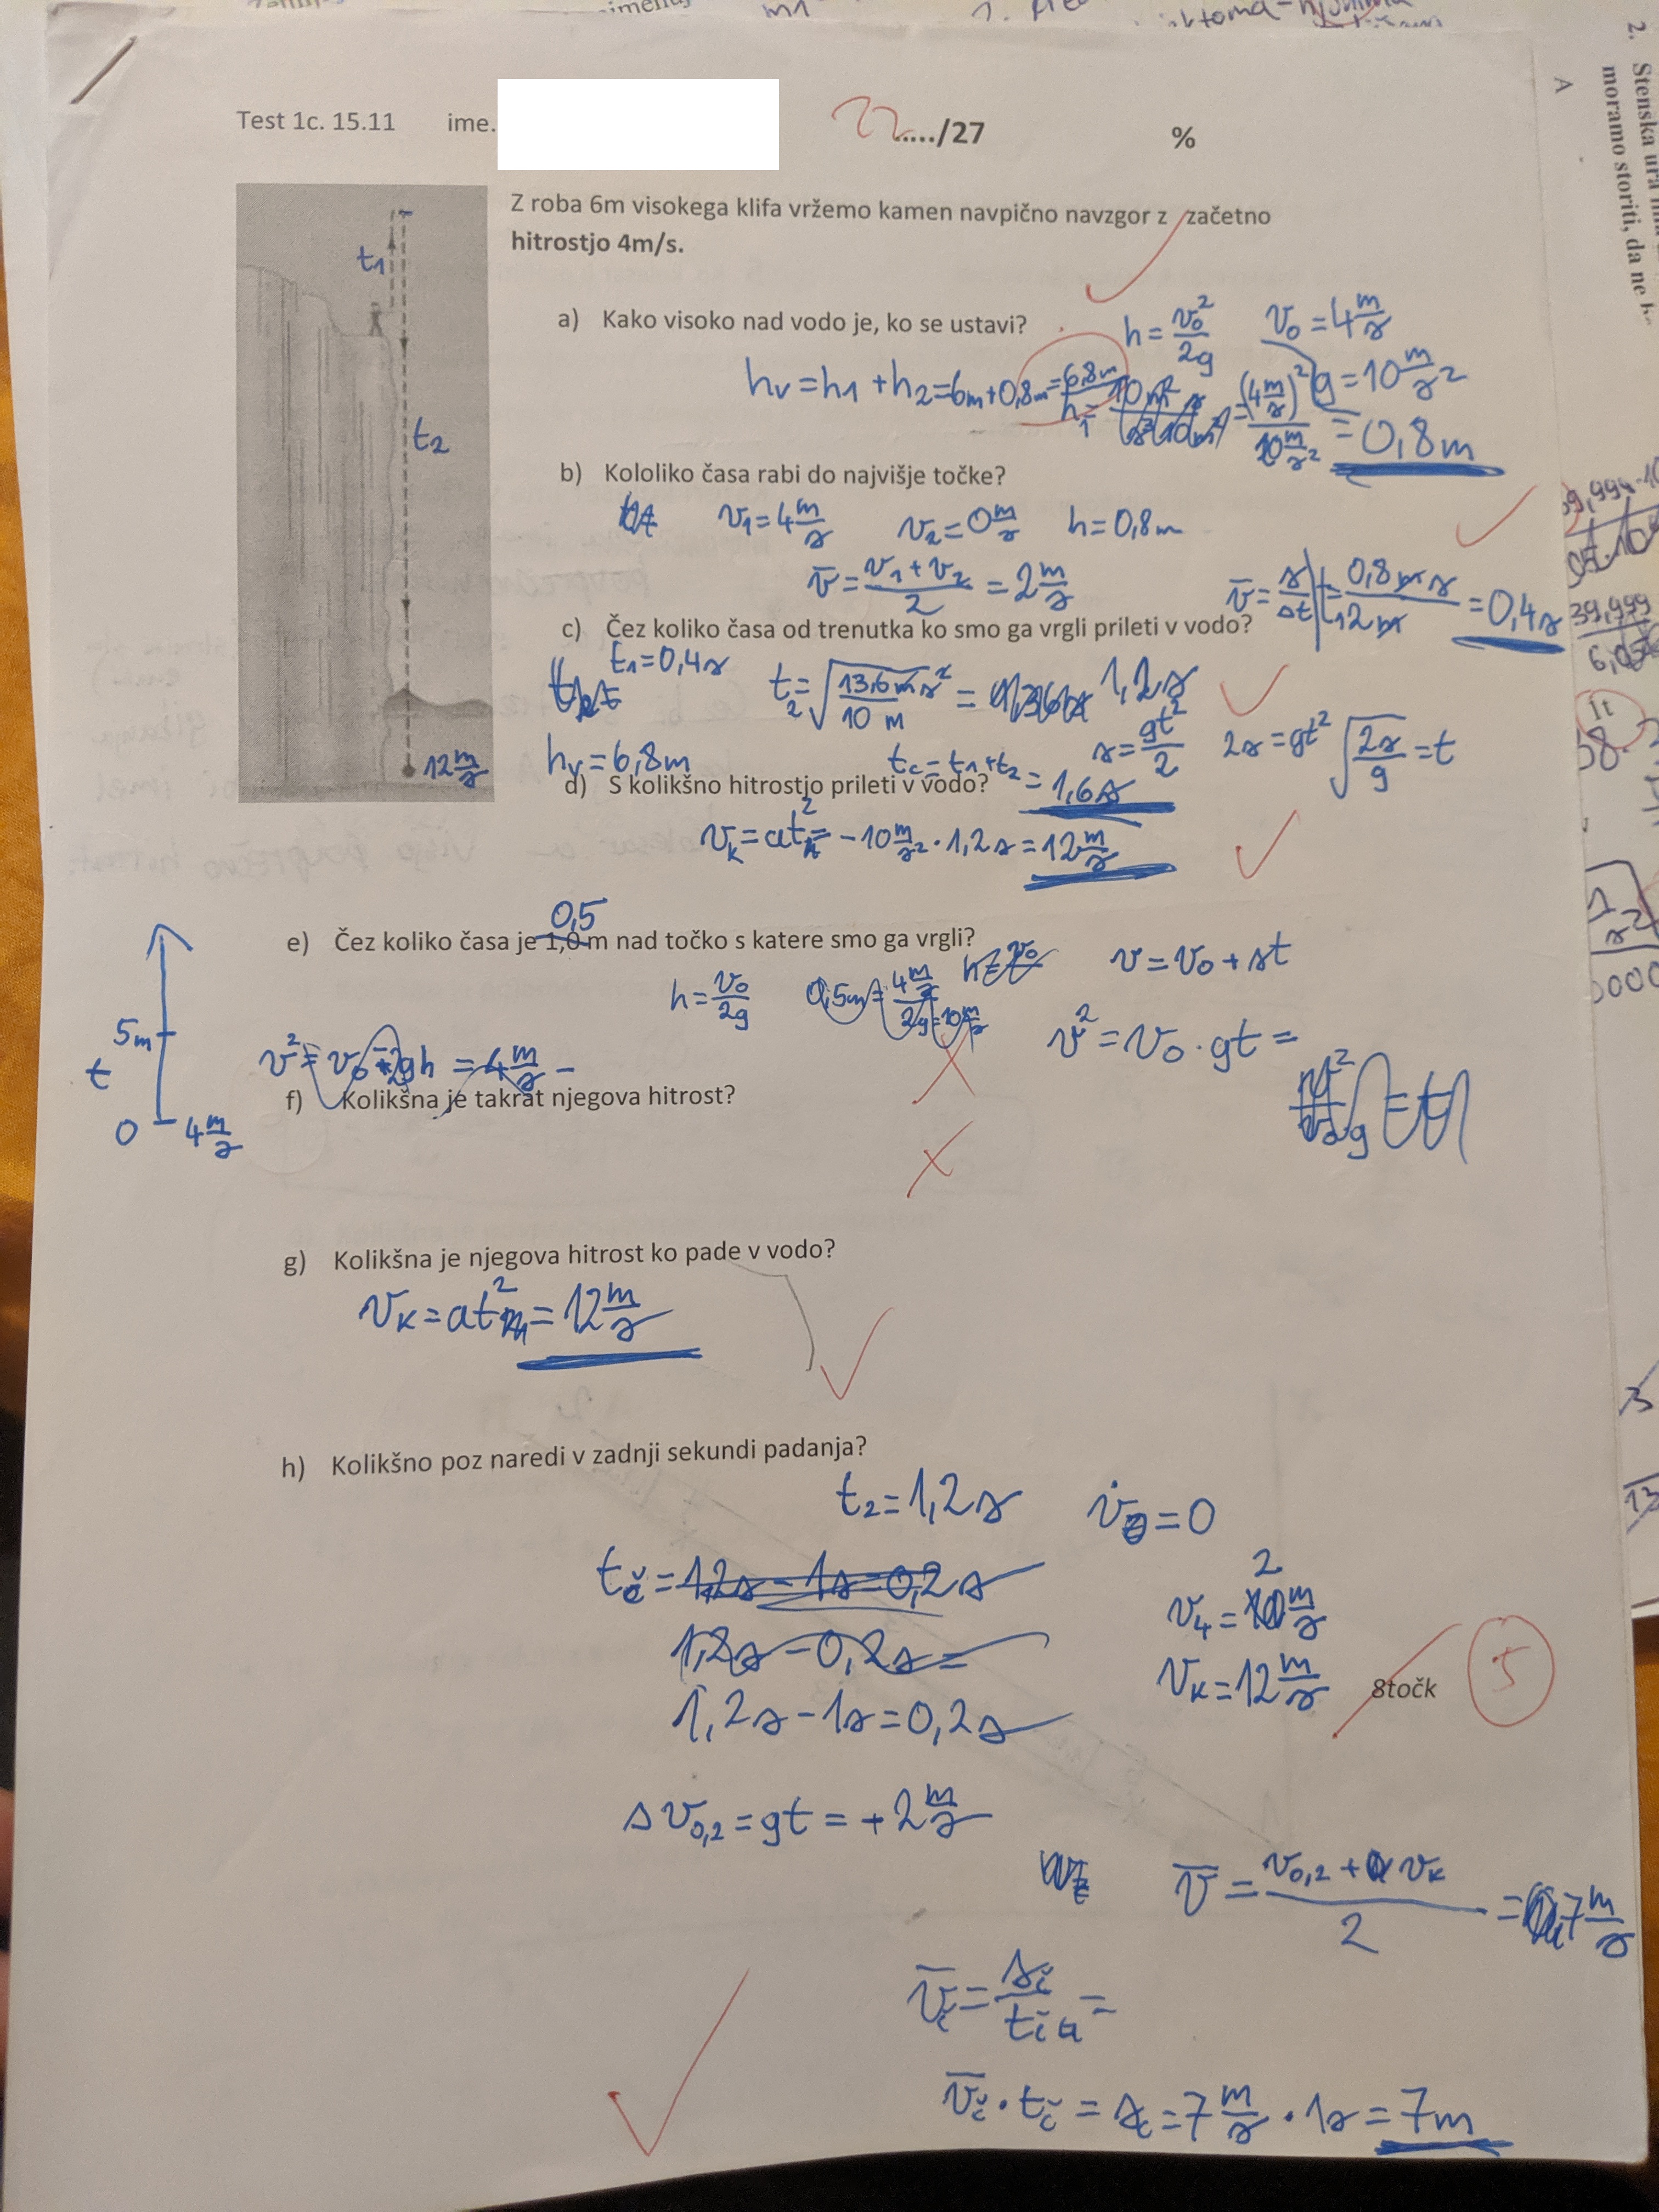 Test 1c. 15.11 ime. 22..../27 %
Z roba 6m visokega klifa vržemo kamen navpično navzgor z začetno
hitrostjo 4m/s.
t1
t2
12 m/s
a) Kako visoko nad vodo je, ko se ustavi?
h = v0²/2g v0 = 4 m/s
hv = h1 + h2 = 6m + 0,8m = 6,8m g = 10 m/s²
= (4 m/s)²/20 m/s² = 0,8m
b) Kololiko časa rabi do najvišje točke?
v1 = 4 m/s v2 = 0 m/s h = 0,8m
v̄ = v1 + v2/2 = 2 m/s v̄ = s/Δt t1 = 0,8 m s/2 m = 0,4s
c) Čez koliko časa od trenutka ko smo ga vrgli prileti v vodo?
t1 = 0,4s t2 = √13,6 m s²/10 m = 1,2s
hv = 6,8m tc = t1 + t2 = 1,6s s = gt²/2 2s = gt² √2s/g = t
d) S kolikšno hitrostjo prileti v vodo?
vk = at2 = -10 m/s² · 1,2s = 12 m/s
0,5
e) Čez koliko časa je 1,0 m nad točko s katere smo ga vrgli?
h = v0/2g 0,5m = 4 m/s v = v0 + st
v² = v0 · gt =
5m
t
0 4 m/s
v² = v0 - 2gh = 4 m/s -
f) Kolikšna je takrat njegova hitrost?
g) Kolikšna je njegova hitrost ko pade v vodo?
vk = at2 = 12 m/s
h) Kolikšno poz naredi v zadnji sekundi padanja?
t2 = 1,2s v0 = 0
tč = 1,2s - 1s = 0,2s
v4 = 2 m/s
1,2s - 0,2s =
vk = 12 m/s
8točk 5
1,2s - 1s = 0,2s
Δv0,2 = gt = +2 m/s
v̄ = v0,2 + vk/2 = 7 m/s
v̄č = sč/tč =
v̄č · tč = sč = 7 m/s · 1s = 7m
2. Stenska ura
moramo storiti, da ne
A
39,999